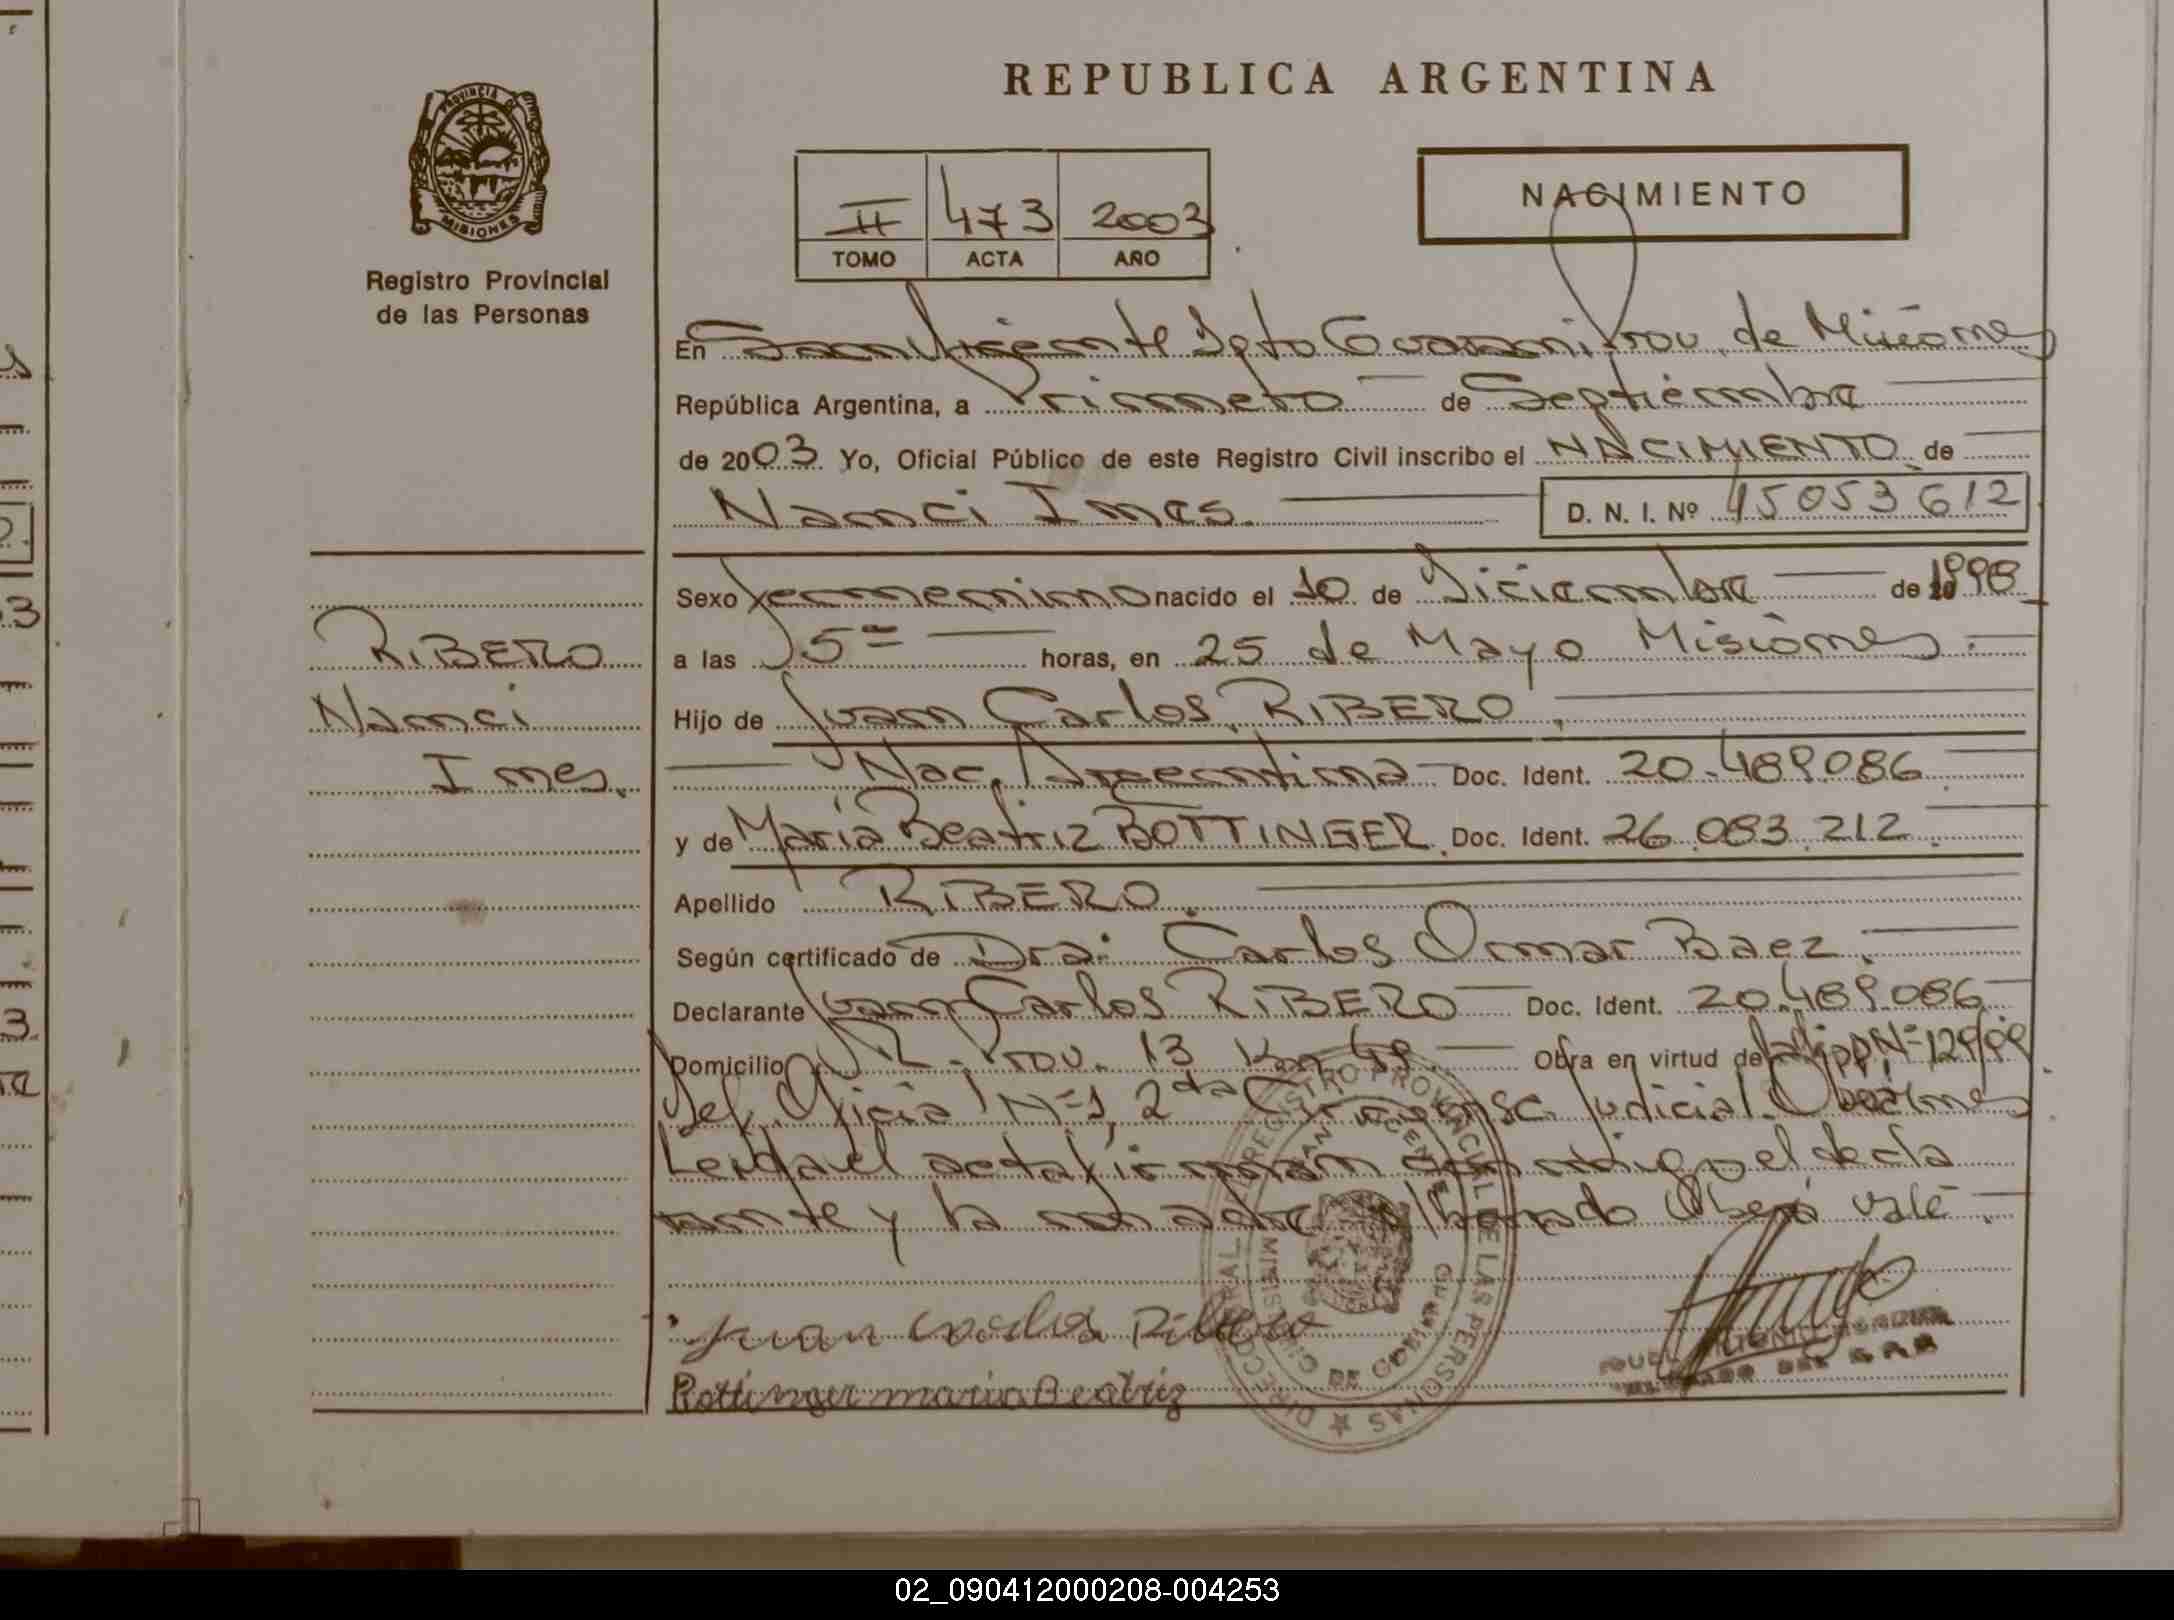 REPUBLICA ARGENTINA
PROVINCIA DE
MISIONES
Registro Provincial
de las Personas
II 473 2003
TOMO ACTA AÑO
NACIMIENTO
En San Vicente Dpto Guarani Prov. de Misiones
República Argentina, a Primero de Septiembre
de 2003 Yo, Oficial Público de este Registro Civil inscribo el NACIMIENTO de
Nanci Ines. D. N. I. Nº 45053612
RIBERO
Nanci
Ines.
Sexo femenino nacido el 10 de Diciembre de 1998
a las 15= horas, en 25 de Mayo Misiones.
Hijo de Juan Carlos RIBERO.
Nac. Argentina Doc. Ident. 20.489086
y de María Beatriz BOTTINGER. Doc. Ident. 26.083.212
Apellido RIBERO.
Según certificado de Dra: Carlos Omar Baez.
Declarante Juan Carlos RIBERO Doc. Ident. 20.489.086
Domicilio R. Prov. 13 Km 49. Obra en virtud de
Def. Oficial Nº1, 2da Judicial. Oberá
Leida el acta firman conmigo el decla
rante y la madre Oberá vale.
Juan Carlos Ribero
Bottinger maria Beatriz
DIRECCION GRAL. DE REGISTRO PROVINCIAL DE LAS PERSONAS
SAN VICENTE
MISIONES
02_090412000208-004253